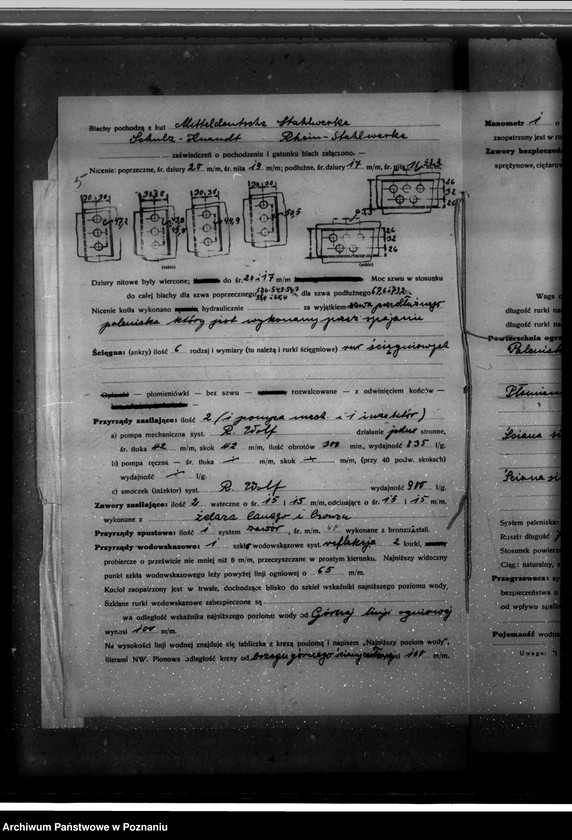 Blachy pochodzą z hut Mitteldeutsche Stahlwerke
Schulz-Knaudt Rhein-Stahlwerke
zaświadczeń o pochodzeniu i gatunku blach załączono.
Nicenie: poprzeczne, śr. dziury 20 m/m, śr. nita 19 m/m; podłużne, śr. dziury 17 m/m, śr. nita 16 m/m,
5
30 30
47,2
30 30
30 30
48,9
50,5
26
32
26
26
32
26
(szkic)
(szkic)
Dziury nitowe były wiercone; do śr. 20 i 17 m/m Moc szwu w stosunku
do całej blachy dla szwa poprzecznego %, dla szwa podłużnego %
Nicenie kotła wykonano hydraulicznie za wyjątkiem szwa podłużnego
paleniska który jest wykonany przez spajanie
Ścięgna: (ankry) ilość 6 rodzaj i wymiary (tu należą i rurki ścięgniowe) rur ścięgniowych
— płomieniówki — bez szwu — rozwalcowane — z odwinięciem końców —
Przyrządy zasilające: ilość 2 (1 pompa mech. i 1 inżektór)
a) pompa mechaniczna syst. R. Wolf działanie jedno stronne,
śr. tłoka 42 m/m, skok 42 m/m, ilość obrotów min., wydajność 835 l/g.
b) pompa ręczna — śr. tłoka — m/m, skok — m/m, (przy 40 podw. skokach)
wydajność — l/g.
c) smoczek (inżektor) syst. R. Wolf wydajność 900 l/g.
Zawory zasilające: ilość 2 wsteczne o śr. 15 i 15 m/m, odcinające o śr. 15 i 15 m/m.
wykonane z żelaza lanego i bronzu
Przyrządy spustowe: ilość 1 system zawór, śr. m/m. 40 wykonane z bronzu i stali.
Przyrządy wodowskazowe: 1 szkło wodowskazowe syst. refleksja 2 kurki,
probiercze o prześwicie nie mniej niż 8 m/m, przeczyszczany w prostym kierunku. Najniższy widoczny
punkt szkła wodowskazowego leży powyżej linji ogniowej o 65 m/m.
Kocioł zaopatrzony jest w trwałe, dochodzące blisko do szkieł wskaźniki najniższego poziomu wody.
Szklane rurki wodowskazowe zabezpieczone są
wa odległość wskaźnika najniższego poziomu wody od Górnej linji ogniowej
wynosi 100 m/m.
Na wysokości linji wodnej znajduje się tabliczka z kresą poziomą i napisem „Najniższy poziom wody",
literami NW. Pionowa odległość kresy od brzegu górnego ściany 160 m/m.
Manometr 1 o
zaopatrzony jest w ru
Zawory bezpieczeń
sprężynowe, ciężarow
Waga c
długość rurki na
długość rurki na
Powierzchnia ogrz
Palenisk
Płomien
Ściana
Ściana
System paleniska:
Ruszt: długość
Stosunek powierz
Ciąg: naturalny, s
Przegrzewacz: sys
bezpieczeństwa o
od wpływu spalin
Pojemność wodna
Uwaga: *)
Archiwum Państwowe w Poznaniu